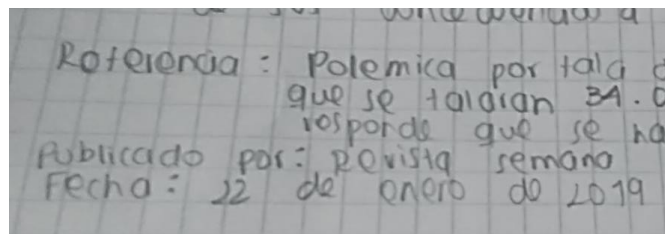 Referencia: Polemica por tala
que se talaran 34.
responde que se ha
Publicado por: Revista semana
Fecha: 22 de enero de 2019